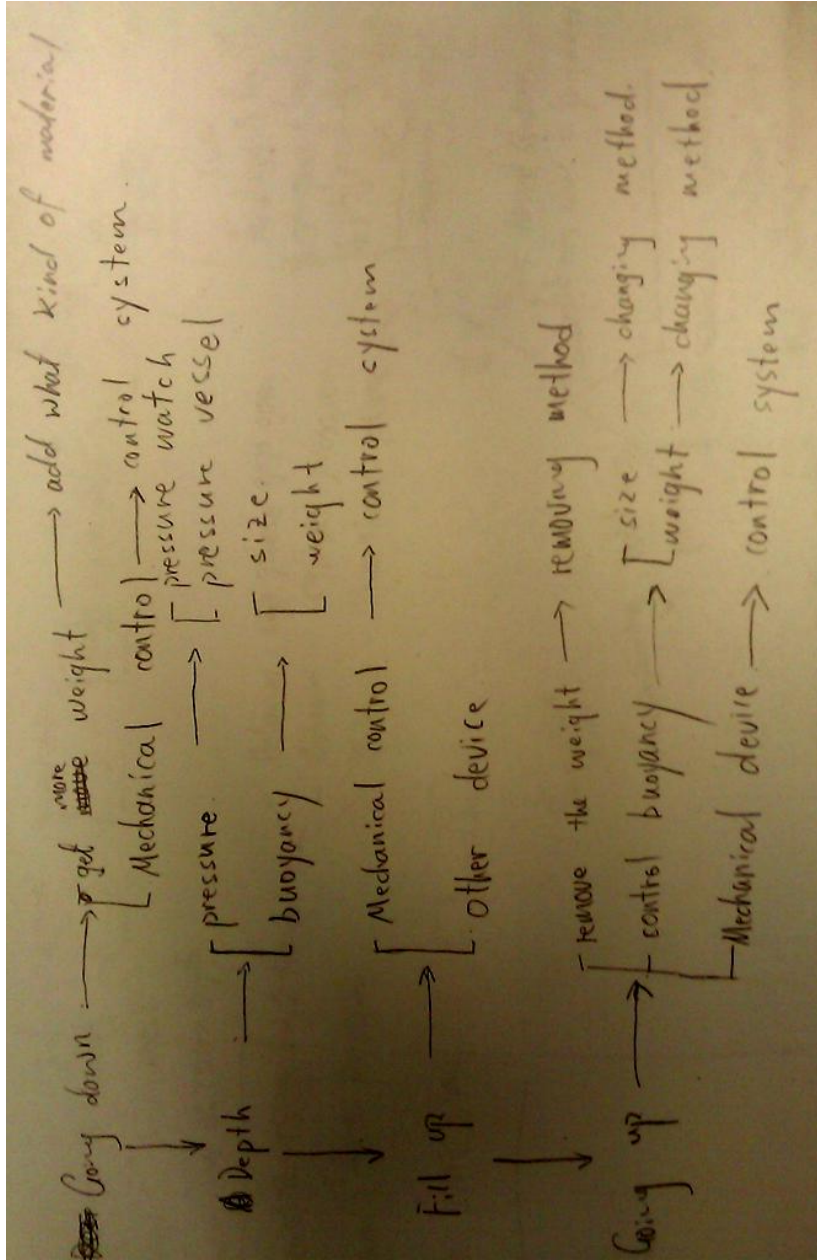 Going down → get more weight → add what kind of material
Mechanical control → control cystem.
Depth → pressure. → pressure watch
pressure vessel
buoyancy → size.
weight
Fill up → Mechanical control → control cystem
other device
Going up → remove the weight → removing method
control buoyancy → size → changing method.
weight → changing method
Mechanical device → control system